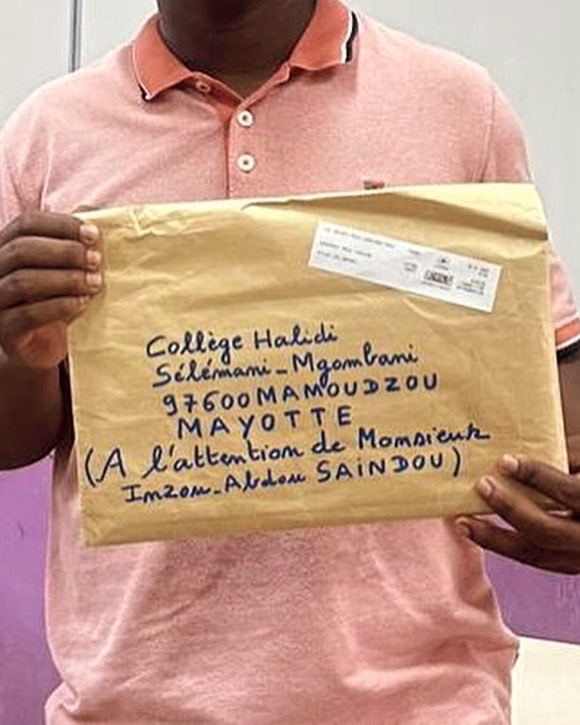 Collège Halidi
Sélémani_Mgombani
97600 MAMOUDZOU
MAYOTTE
(A l'attention de Monsieur
Inzou_Abdou SAINDOU)